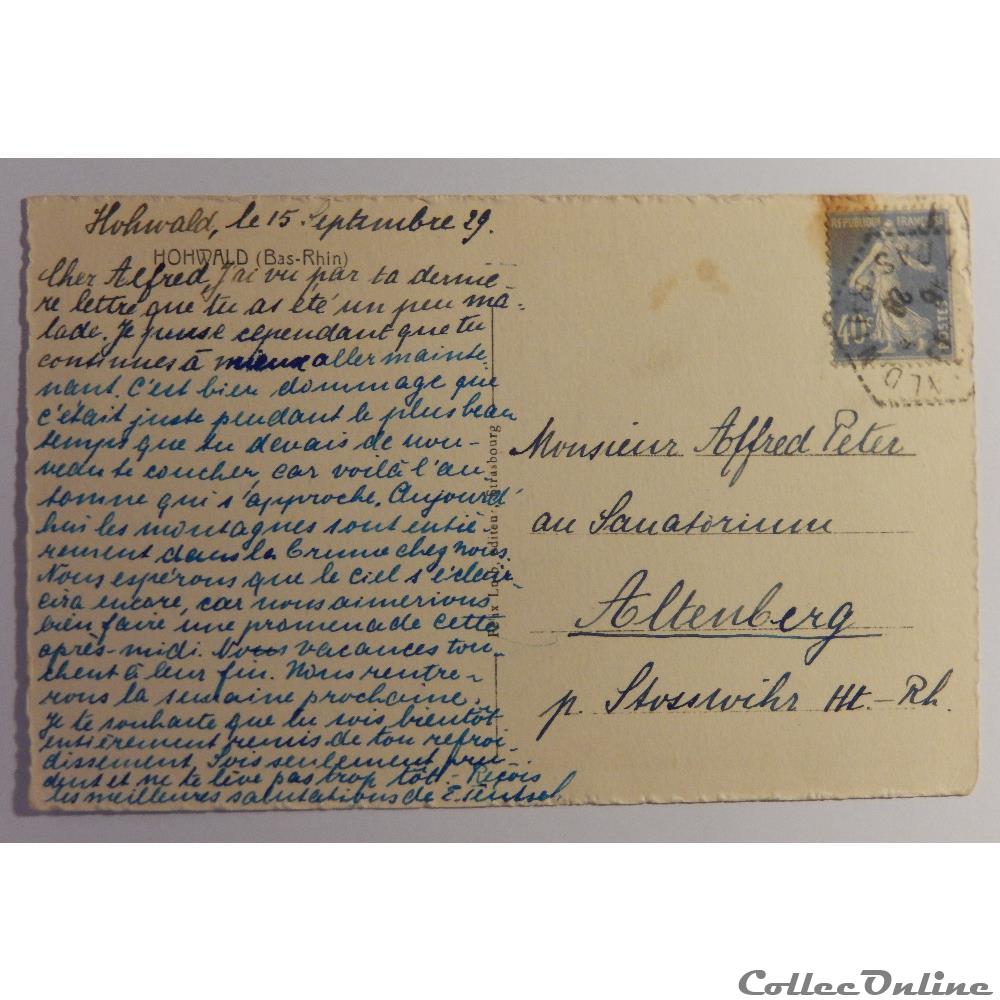 Hohwald, le 15 Septembre 29.
HOHWALD (Bas-Rhin)
Cher Alfred, J'ai vu par ta derniè-
re lettre que tu as été un peu ma-
lade. Je pense cépendant que tu
continues à mieux aller mainte
nant. C'est bien dommage que
c'était juste pendant le plus beau
temps que tu devais de nou-
veau te coucher, car voilà l'au
tomne qui s'approche. Aujourd'
hui les montagnes sont entiè-
rement dans la brume chez nous.
Nous espérons que le ciel s'éclair-
cira encore, car nous aimerions
bien faire une promenade cette
après-midi. Nos vacances tou-
chent à leur fin. Nous rentre-
rons la semaine prochaine.
Je te souhaite que tu sois bientôt
entièrement remis de ton refroi-
dissement. Sois seulement pru-
dent et ne te lève pas trop tôt. - Reçois
les meilleures salutations de E.
éditeur, Strasbourg
REPUBLIQUE FRANÇAISE
POSTES
40
Monsieur Alfred Peter
au Sanatorium
Altenberg
p. Stosswihr Ht.-Rh.
CollecOnline